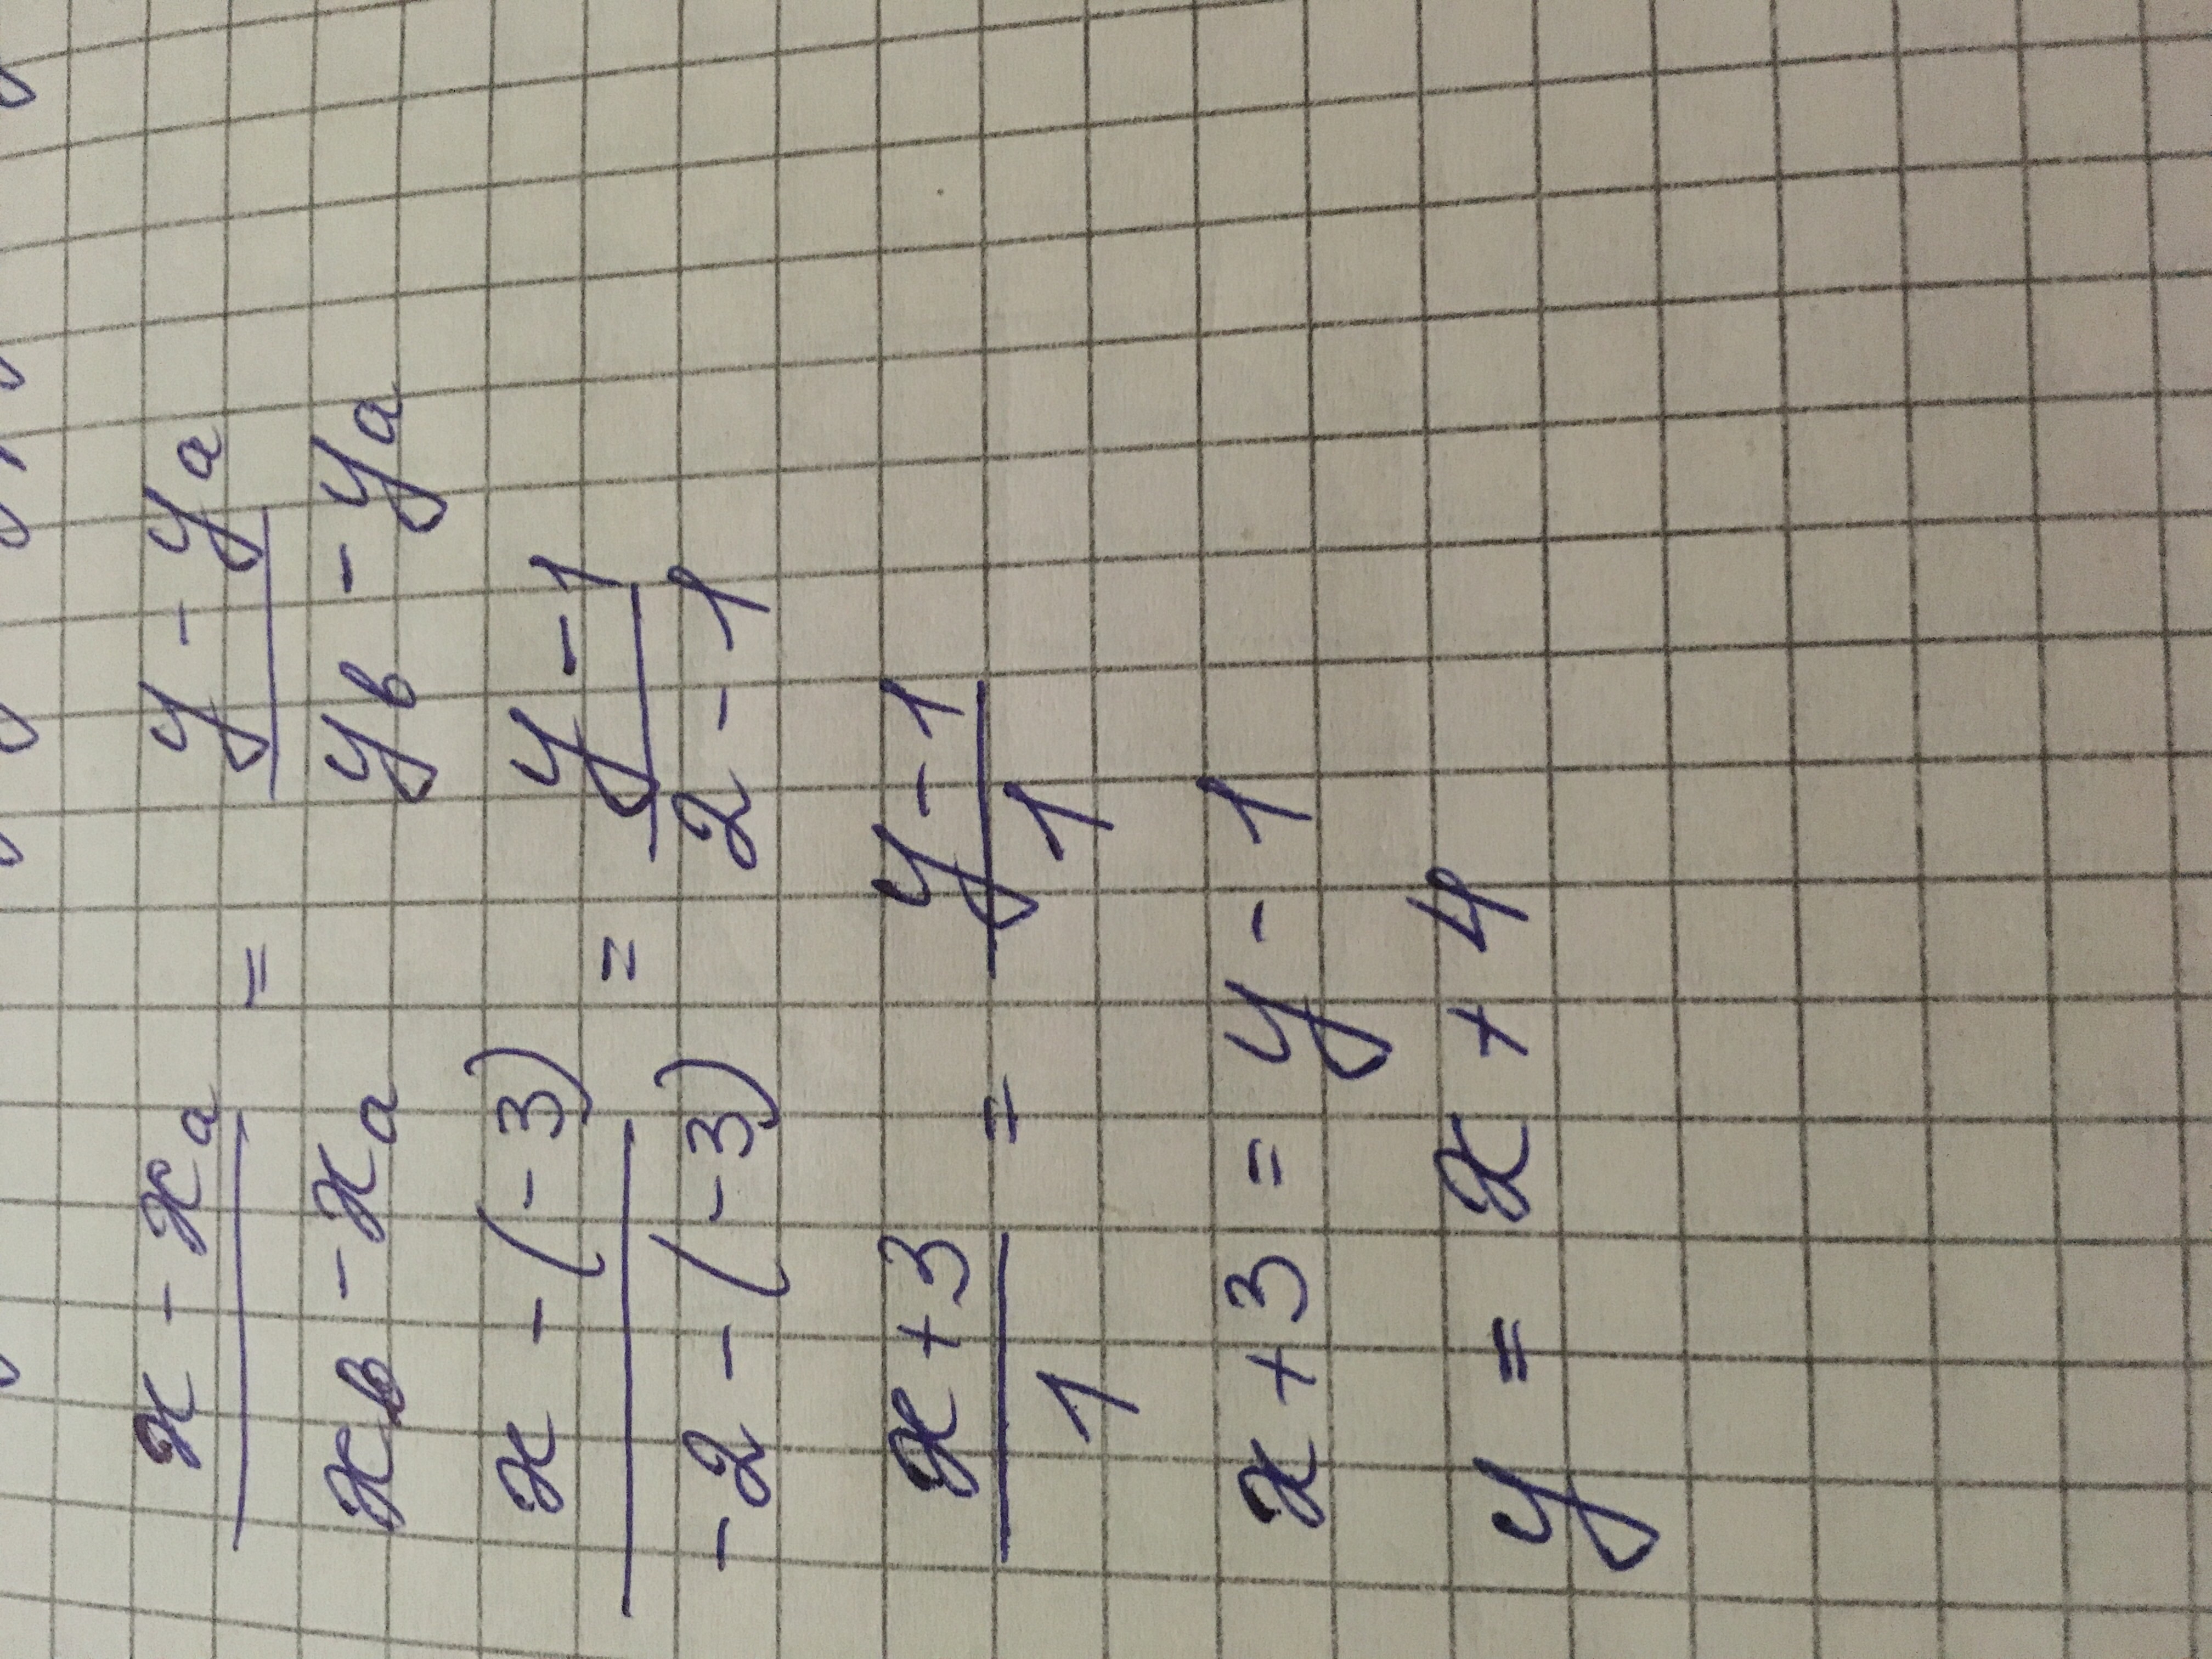 x - xa / xb - xa = y - ya / yb - ya
x - (-3) / -2 - (-3) = y - 1 / 2 - 1
x + 3 / 1 = y - 1 / 1
x + 3 = y - 1
y = x + 4